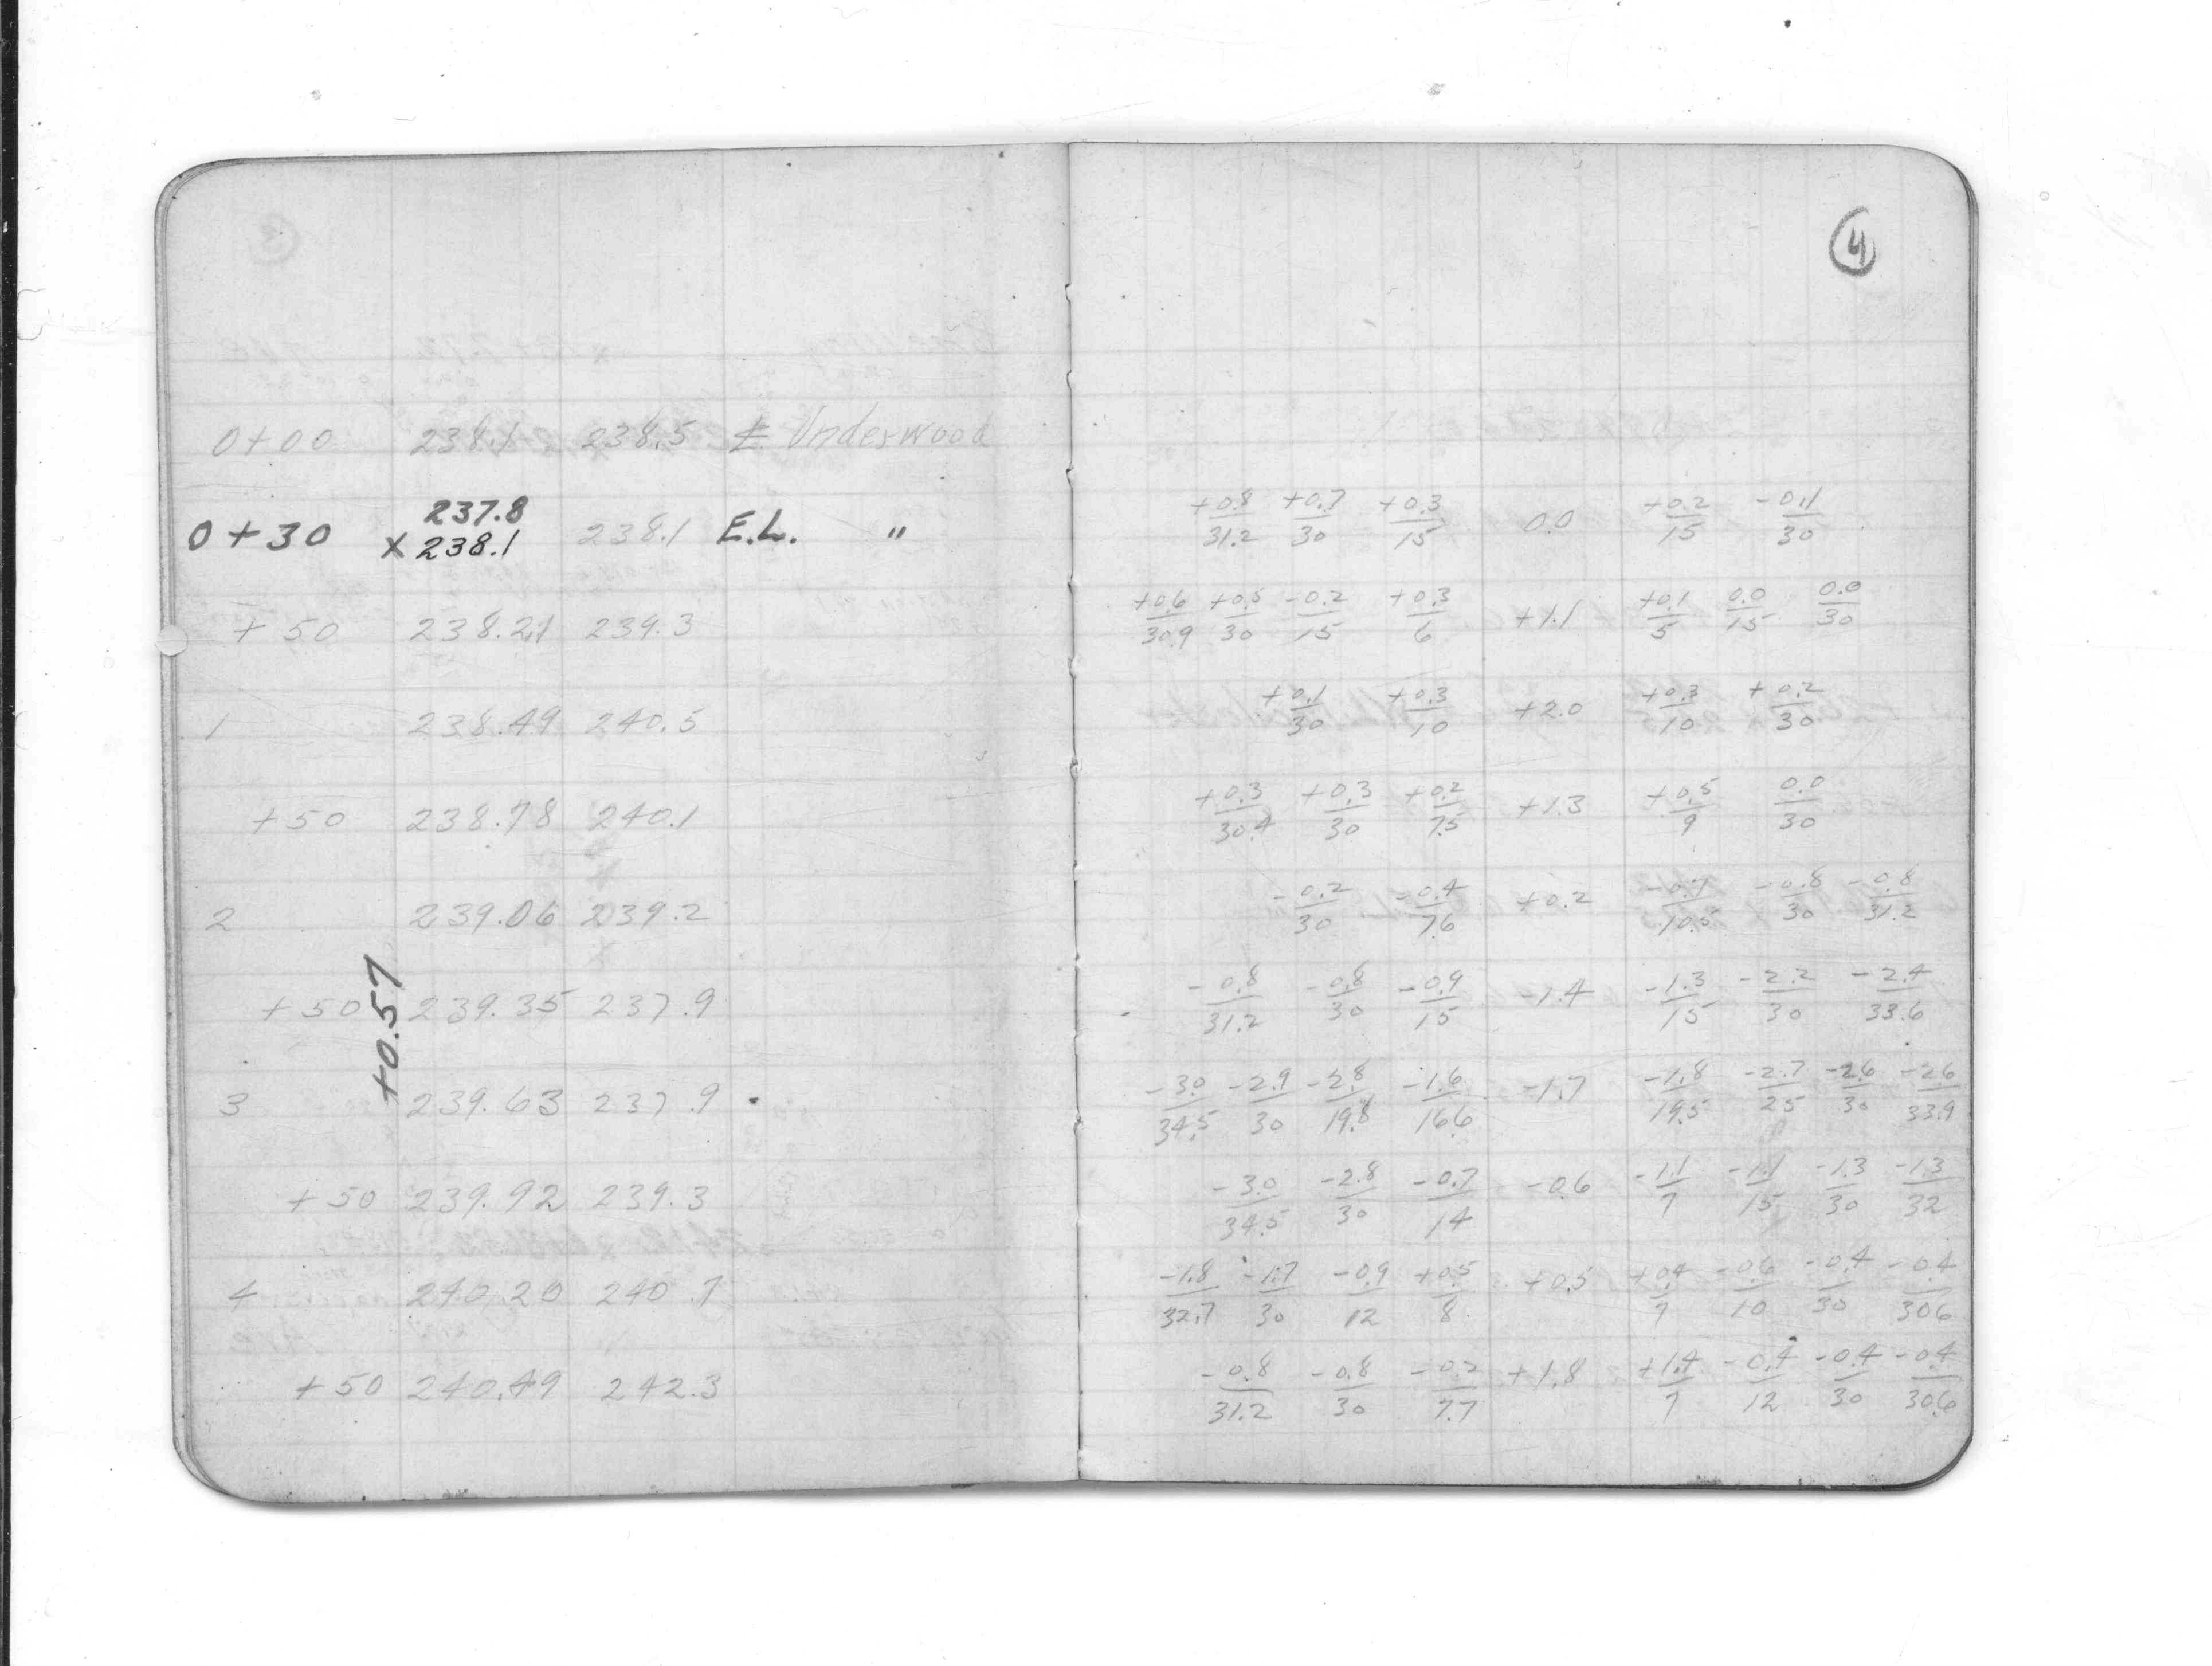 4
0+00 238.1 238.5 ℄ Underwood
237.8
0+30 x 238.1 238.1 E.L. " +0.8/31.2 +0.7/30 +0.3/15 0.0 +0.2/15 -0.1/30
+50 238.21 239.3 +0.6/30.9 +0.5/30 -0.2/15 +0.3/6 +1.1 +0.1/5 0.0/15 0.0/30
1 238.49 240.5 +0.1/30 +0.3/10 +2.0 +0.3/10 +0.2/30
+50 238.78 240.1 +0.3/30.4 +0.3/30 +0.2/7.5 +1.3 +0.5/9 0.0/30
2 239.06 239.2 -0.2/30 -0.4/7.6 +0.2 -0.7/10.5 -0.8/30 -0.8/31.2
+0.57
+50 239.35 237.9 -0.8/31.2 -0.8/30 -0.9/15 -1.4 -1.3/15 -2.2/30 -2.4/33.6
3 239.63 237.9 -3.0/34.5 -2.9/30 -2.8/19.8 -1.6/16.6 -1.7 -1.8/19.5 -2.7/25 -2.6/30 -2.6/33.9
+50 239.92 239.3 -3.0/34.5 -2.8/30 -0.7/14 -0.6 -1.1/7 -1.1/15 -1.3/30 -1.3/32
4 240.20 240.7 -1.8/32.7 -1.7/30 -0.9/12 +0.5/8 +0.5 +0.4/9 -0.6/10 -0.4/30 -0.4/30.6
+50 240.49 242.3 -0.8/31.2 -0.8/30 -0.2/7.7 +1.8 +1.4/7 -0.4/12 -0.4/30 -0.4/30.6